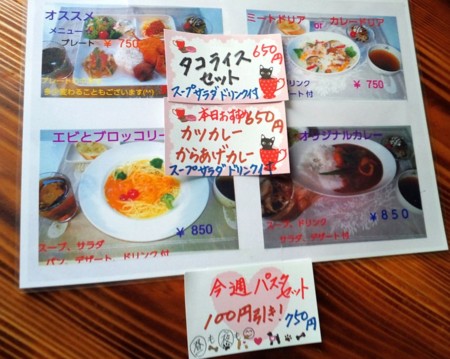 オススメ
メニュー
プレート ¥ 750
ミートドリア or カレードリア
ドリンク
ト付
¥ 750
タコライス
セット
650円
スープサラダドリンク付
本日おすすめ
650円
カツカレー
からあげカレー
スープサラダドリンク付
エビとブロッコリー
¥ 850
スープ、サラダ
パン、デザート、ドリンク付
オリジナルカレー
¥ 850
スープ、ドリンク
サラダ、デザート付
今週パスタ
セット
100円引き!
750円